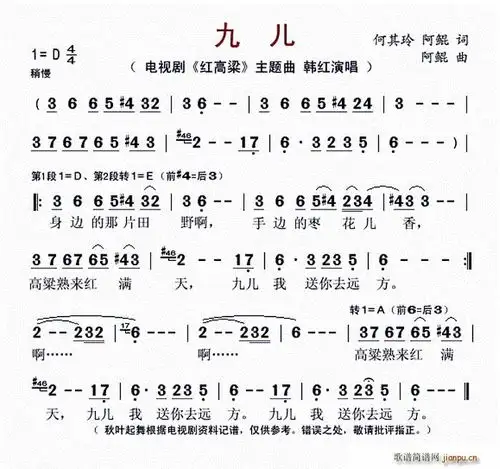 九儿
1=D 4/4
何其玲 阿鲲 词
稍慢
（ 电视剧《红高粱》主题曲 韩红演唱 ）
阿鲲 曲
( 3 6 65 #4 32 | 3 6 · - - | 3 6 65 #4 32 | 3 6 · - - |
3 7 67 65 #43 | #46 2 - - 17 | 6 · 3 23 5 | 6 · - - ) |
第1段1=D、第2段转1=E（前#4=后3）
‖: 3 6 65 #4 32 | 3 6 · - - | 3 6 65 #4 234 | 3 6 · - - |
身 边 的 那 片 田 野 啊， 手 边 的 枣 花 儿 香，
3 7 67 65 #43 | #46 2 - - 17 | 6 · 3 23 5 | 6 · - - :‖
高粱熟来红 满 天， 九儿 我 送你去远 方。
转1=A（前6=后3）
2 - - 232 | 17 6 · - - | 2 - - 232 | 6 · - - | 3 7 67 65 #43 |
啊…… 啊…… 高粱熟来红 满
#46 2 - - 17 | 6 · 3 23 5 | 6 - - 17 | 6 · 3 23 5 | 6 - - - ‖
天， 九儿 我 送你去远 方。 九儿 我 送你去远 方。
（ 秋叶起舞根据电视剧资料记谱，仅供参考。错误之处，敬请批评指正。）
歌谱简谱网
jianpu.cn